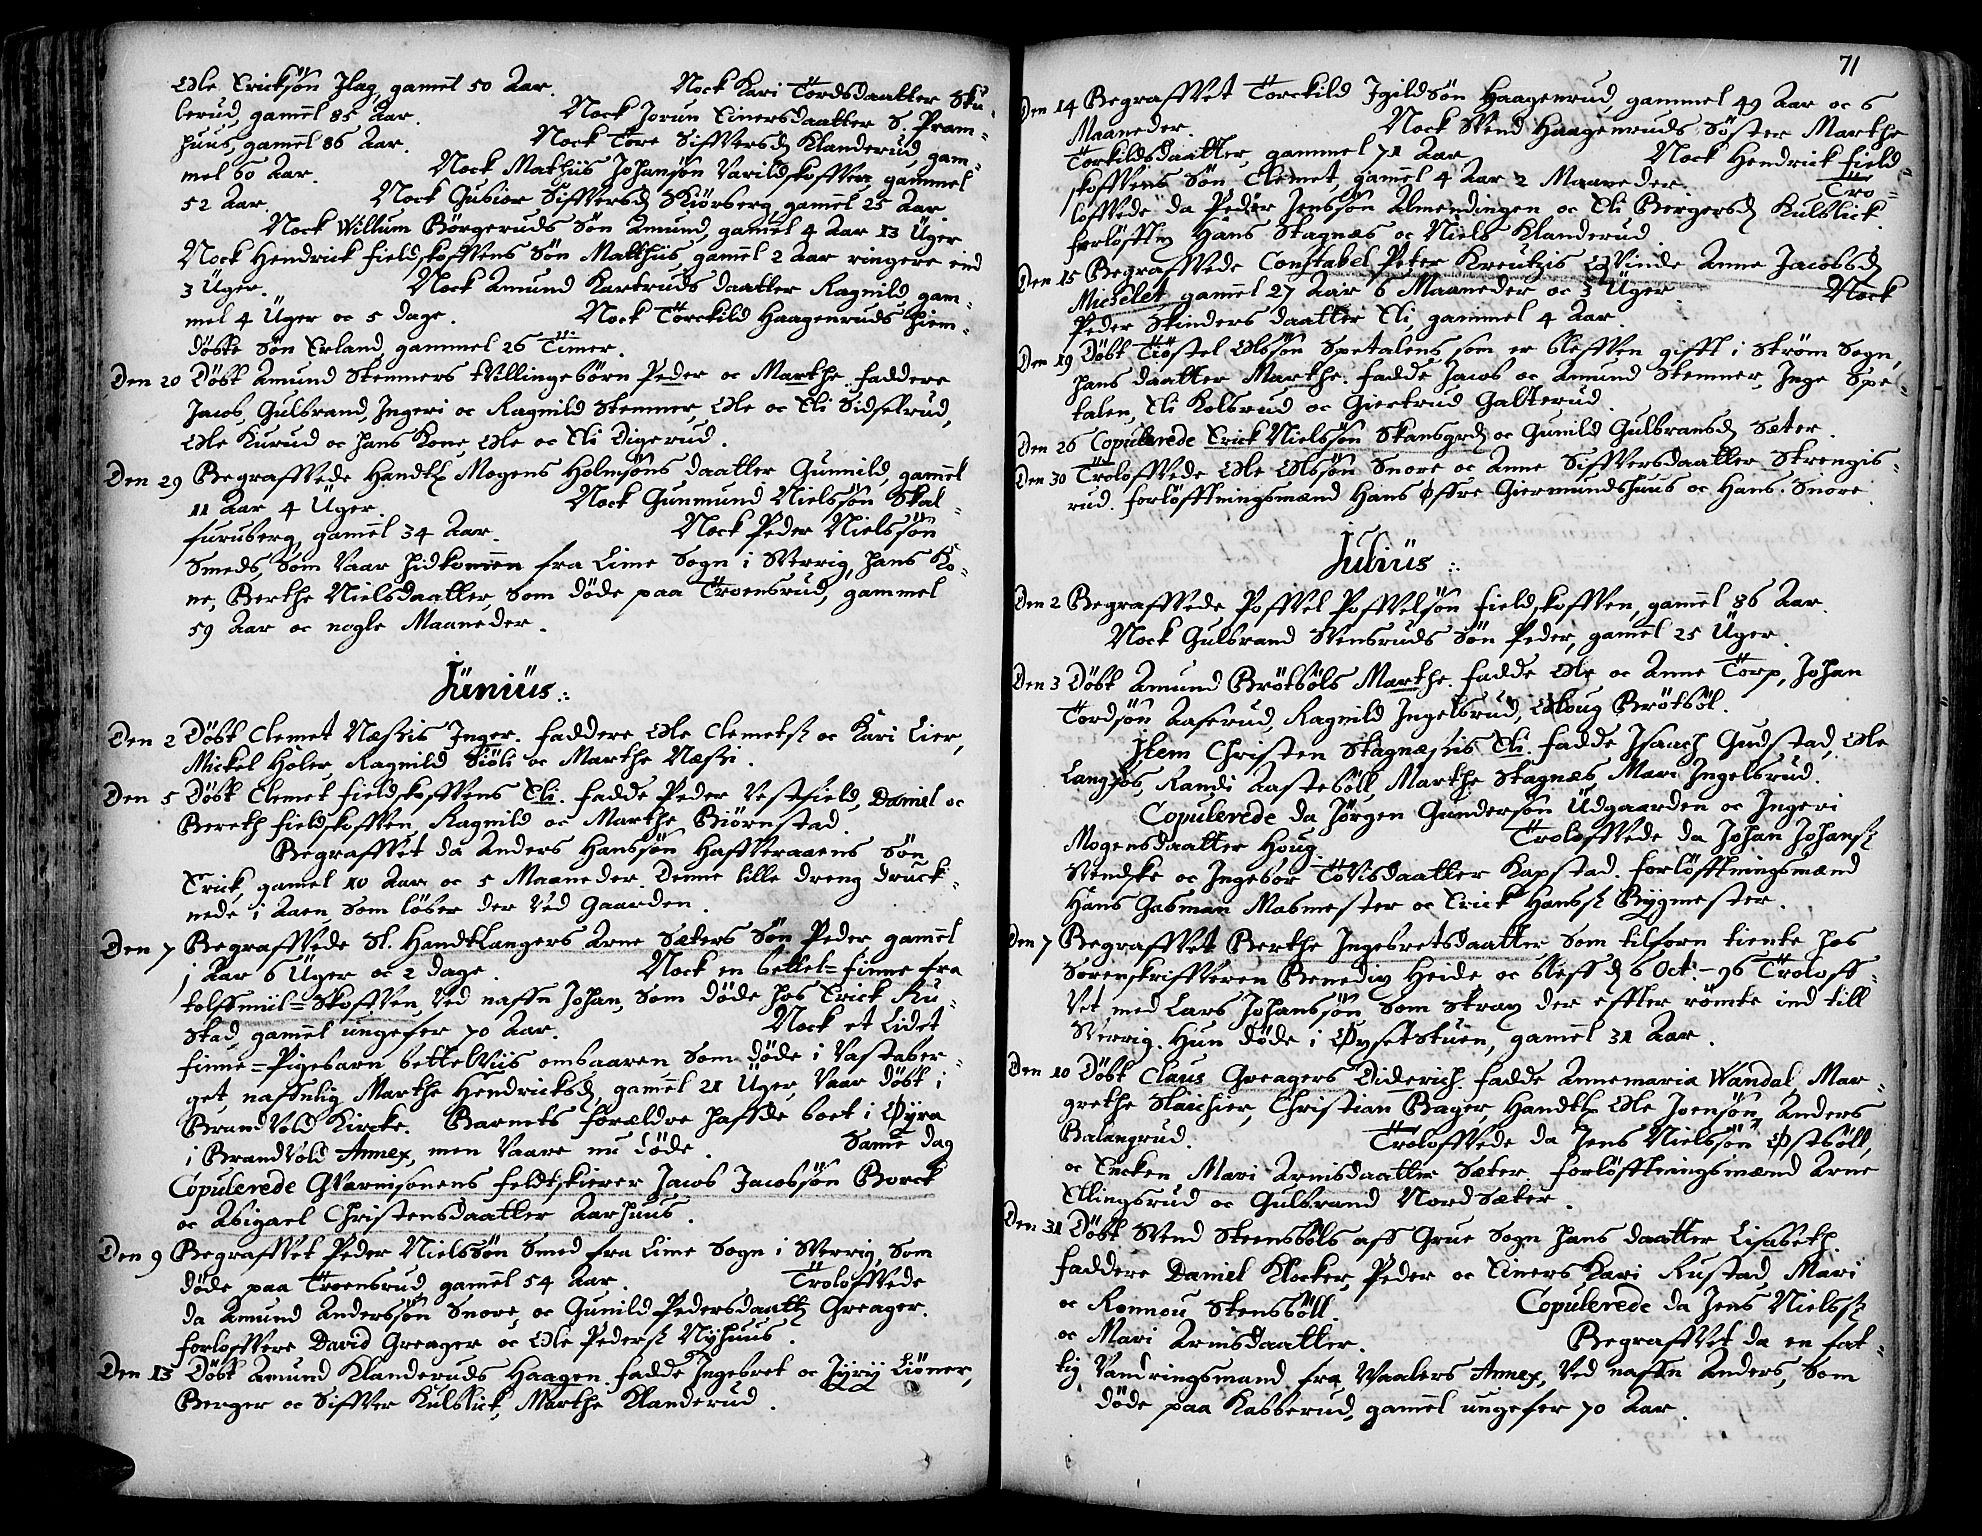 Ole Erickssøn Jlag, gamel 50 Aar. Nock Kari Tordsdaatter Sku-
lerud, gamel 85 Aar. Nock Jorun Einersdaatter S. Pram-
huus, gamel 86 Aar. Nock Tore Siffversd Klanderud, gam-
mel 60 Aar. Nock Mathiis Johansøn Varildskoffven, gammel
52 Aar. Nock Gubiør Siffversd Skiørberg, gamel 25 Aar
Nock Willum Børgeruds Søn Amund, gamel 4 Aar 13 Uger
Nock Hendrick Fieldskoffvens Søn Matthiis, gamel 2 Aar ringere end
3 Uger. Nock Amund Kartruds daatter Ragnild, gam-
mel 4 Uger oc 5 dage. Nock Torckild Haagenruds hiem-
døbte Søn Erland, gammel 26 Timer.
Den 20 Døbt Amund Stemmers tvillingebørn Peder oc Marthe. Faddere
Jacob, Gulbrand, Ingeri oc Ragnild Stemmer, Ole oc Eli Sidselrud,
Ole Kurud oc hans Kone, Ole oc Eli Digerud.
Den 29 Begraffvede Handtl Mogens Holmsøns daatter Gunnild, gamel
11 Aar 4 Uger. Nock Gunmund Nielssøn Skal-
furuberg, gamel 34 Aar. Nock Peder Nielssøn
Smeds, Som Vaar hidkommen fra Lime Sogn i Sverrig, hans Ko-
ne, Berthe Nielsdaatter, Som døde paa Troensrud, gammel
59 Aar oc nogle Maaneder.
Junius
Den 2 Døbt Clemet Næssis Inger. Faddere Ole Clemets oc Kari Lier,
Mickel Holer Ragnild Siøli oc Marthe Næssi.
Den 5 Døbt Clemet Fieldskoffvens Eli. Fadde Peder Vestfield, Daniel oc
Bereth Fieldskoffven, Ragnild oc Marthe Biørnstad.
Begraffvet da Anders Hanssøn Haffveraaens Søn
Erick, gamel 10 Aar oc 5 Maaneder. Denne lille dreng druck-
nede i Aaen, Som løber der Ved Gaarden.
Den 7 Begraffvede Sl. Handtlangers Arne Sæters Søn Peder, gamel
1 Aar 6 Uger oc 2 dage. Nock en bettel-finne fra
tolffmiil-Skoffven, Ved naffn Johan, Som døde hos Erick Ru-
stad, gamel ungefer 70 Aar. Nock et Lidet
finne-Pigebarn bettelviis ombaaren, Som døde i Vastaber-
get, naffnlig Marthe Hendricksd, gamel 21 Uger, Vaar døbt i
Brandvold Kircke. Barnets forældre haffde boet i Øyra
i Brandvold Annex, men Vaare nu døde. Samme dag
Copulerede Gvarnisonens Feldtskierer Jacob Jacobssøn Borck
oc Abigael Christensdaatter Aarhuus.
Den 9 Begraffvet Peder Nielssøn Smed fra Lime Sogn i Sverrig, Som
døde paa Troensrud, gamel 54 Aar. Troloffvede
da Amund Anderssøn Snore, oc Gunild Pedersdaatt Greager.
forloffvere David Greager oc Ole Peders Nyhuus.
Den 13 Døbt Amund Klanderuds Haagen. Fadde Ingebret oc Jyry Liøner,
Berger oc Siffver Kulblick, Marthe Klanderud.
71
Den 14 Begraffvet Torckild Igildsøn Haagenrud, gammel 49 Aar oc 6
Maaneder. Nock Svend Haagenruds Søster Marthe
Torkildsdaatter, gammel 71 Aar. Nock Hendrick Field-
skoffvens Søn Clemet, gamel 4 Aar 2 Maaneder. Tro-
loffvede da Peder Jenssøn Almendingen oc Eli Bergersd Kulblick
forløfftn Hans Stagnæs oc Niels Klanderud.
Den 15 Begraffvede Constabel Peter Kreutzis Qvinde Anne Jacobsd
Michelet, gamel 27 Aar 6 Maaneder oc 3 Uger. Nock
Peder Skinders daatter Eli, gammel 4 Aar.
Den 19 Døbt Trostel Olssøn Spetalens som er bleffven gifft i Strøm Sogn,
hans daatter Marthe. Fadde Jacob oc Amund Stemmer, Inge Spe-
talen, Eli Kolbrud oc Giertrud Galterud.
Den 26 Copulerede Erick Nielssøn Skansgrd oc Gunild Gulbransd Sæter.
Den 30 Troloffvede Ole Olssøn Snore oc Anne Siffversdaatter Strengis-
rud. Forløfftningsmænd Hans Øffre Giermundshuus oc Hans Snore.
Julius
Den 2 Begraffvede Poffvel Poffvelsøn Fieldskoffven, gamel 86 Aar.
Nock Gulbrand Svensruds Søn Peder, gamel 25 Uger.
Den 3 Døbt Amund Brøtbøls Marthe. Fadde Ole oc Anne Torp, Johan
Tordsøn Aaserud, Ragnild Ingelsrud, Oloug Brøtbøl.
Item Christen Stagnæssis Eli. Fadde Isaach Gudstad, Ole
Langfos, Randi Aastebøll, Marthe Stagnæs, Mari Ingelsrud.
Copulerede da Jørgen Gundersøn Udgaarden oc Ingeri
Mogensdaatter Houg. Troloffvede da Johan Johans
Svendske oc Ingebor Tovisdaatter Kapstad. Forløfftningsmænd
Hans Gasman Masmester oc Erick Hanss Bygmester.
Den 7 Begraffvet Berthe Ingebretsdaatter Som tilforn tiente hos
Sorenskriffveren Benedix Heide oc bleff d 6 Oct. 96 Troloff-
Vet med Lars Johanssøn Som Strax der effter rømte ind till
Sverrig. Hun døde i Øysetstuen, gamel 31 Aar.
Den 10 Døbt Claus Greagers Diderich. Fadde Annemaria Wandal, Mar-
grethe Slaichier, Christian Bager, Handtl Ole Joensøn, Anders
Balangrud. Troloffvede da Jens Nielssøn Østbøll,
oc Encken Mari Armisdaatter Sæter. Forløfftningsmænd Arne
Ellingsrud oc Gulbrand Nordsæter.
Den 31 Døbt Svend Steensbøls aff Grue Sogn hans daatter Lisabeth.
Faddere Daniel Klocker, Peder oc Einers Kari Rustad, Mari
oc Ronnou Stensbøll. Copulerede da Jens Nielss
oc Mari Armisdaatter. Begraffvet da en fat-
tig Vandringsmand fra Waalers Annex, Ved naffn Anders, Som
døde paa Kabberud, gamel ungefer 70 Aar.